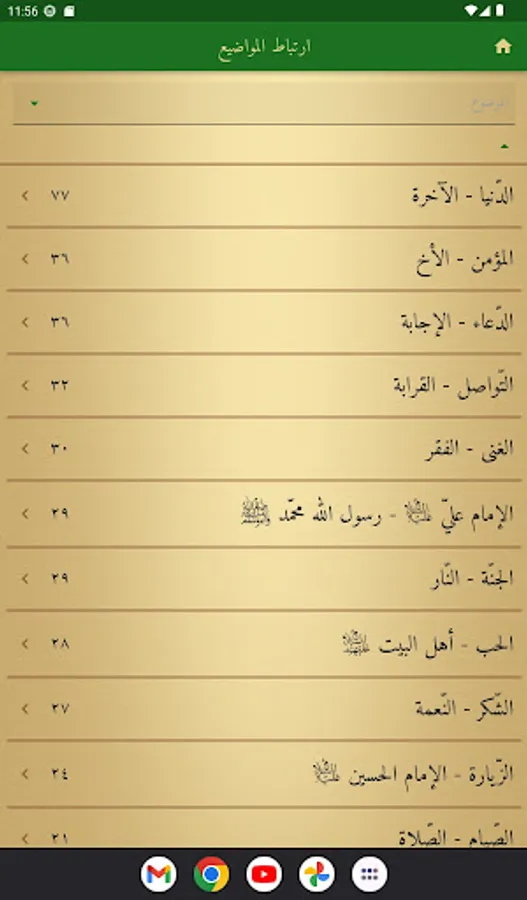 11:56
ارتباط المواضيع
الموضوع
الدّنيا - الآخرة ٧٧
المؤمن - الأخ ٣٦
الدّعاء - الإجابة ٣٦
التّواصل - القرابة ٣٢
الغنى - الفقر ٣٠
الإمام عليّ - رسول الله محمّد ﷺ ٢٩
الجنّة - النّار ٢٩
الحب - أهل البيت ٢٨
الشّكر - النّعمة ٢٧
الزّيارة - الإمام الحسين ٢٤
الصّيام - الصّلاة ٢١